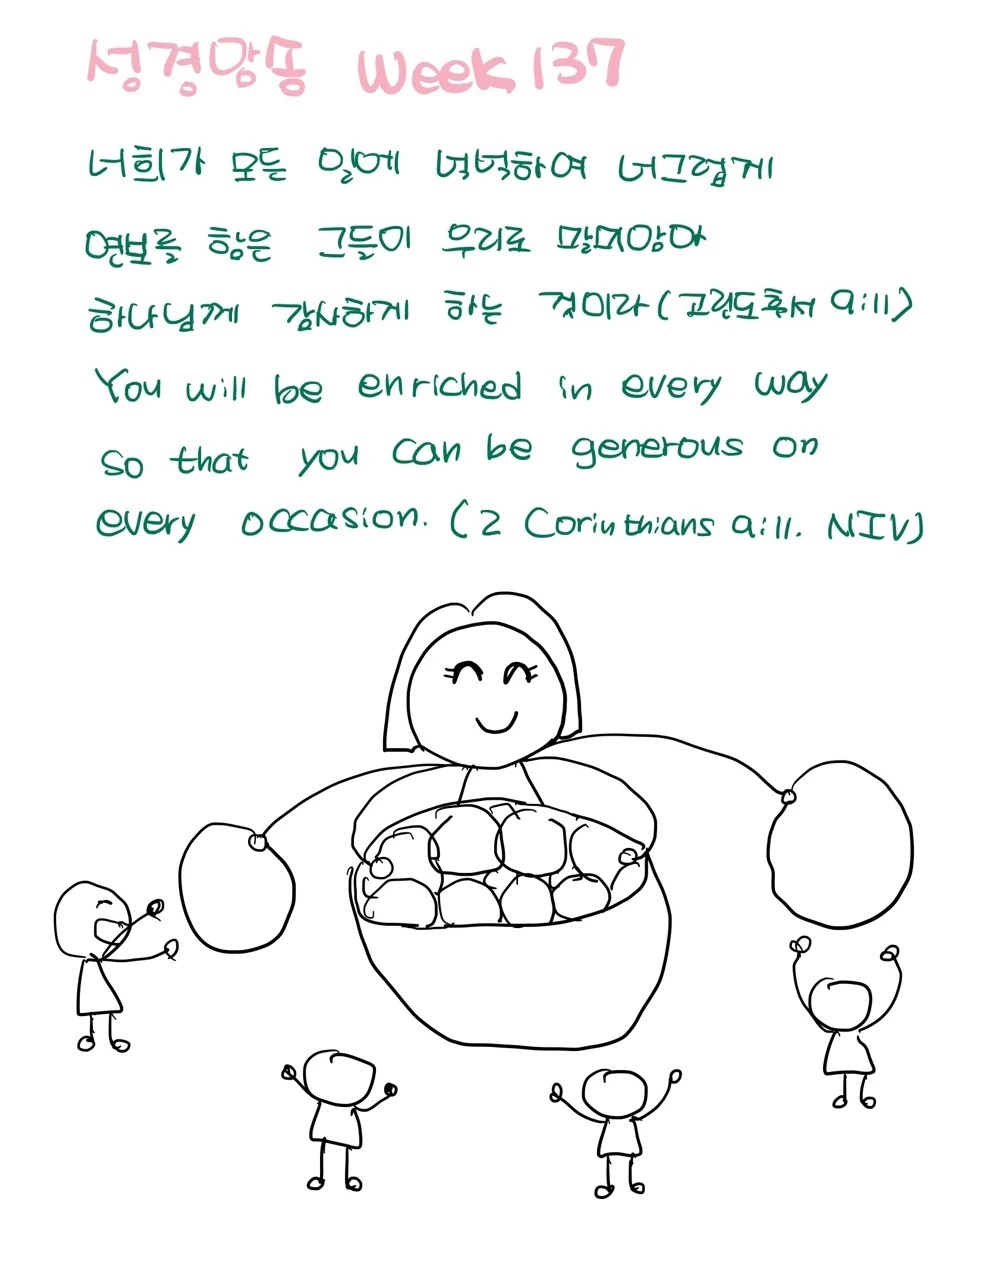 성경암송 Week 137
너희가 모든 일에 넉넉하여 너그럽게
연보를 함은 그들이 우리로 말미암아
하나님께 감사하게 하는 것이라 (고린도후서 9:11)
You will be enriched in every way
so that you can be generous on
every occasion. (2 Corinthians 9:11. NIV)